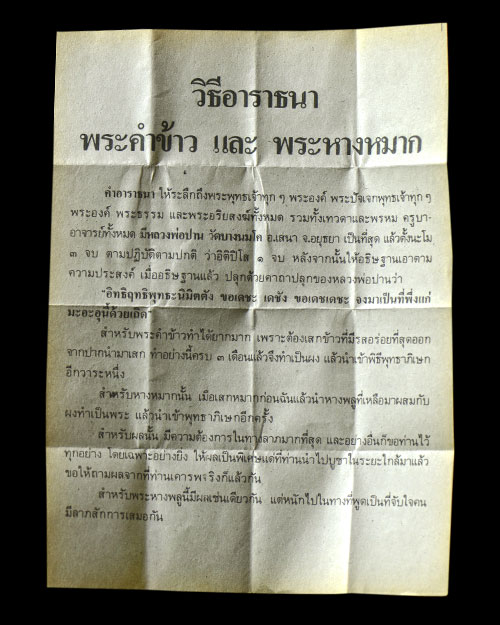 วิธีอาราธนา
พระคำข้าว และ พระหางหมาก
คำอาราธนา ให้ระลึกถึงพระพุทธเจ้าทุก ๆ พระองค์ พระปัจเจกพุทธเจ้าทุก ๆ
พระองค์ พระธรรม และพระอริยสงฆ์ทั้งหมด รวมทั้งเทวดาและพรหม ครูบา-
อาจารย์ทั้งหมด มีหลวงพ่อปาน วัดบางนมโค อ.เสนา จ.อยุธยา เป็นที่สุด แล้วตั้งนะโม
๓ จบ ตามปฏิบัติตามปกติ ว่าอิติปิโส ๑ จบ หลังจากนั้นให้อธิษฐานเอาตาม
ความประสงค์ เมื่ออธิษฐานแล้ว ปลุกด้วยคาถาปลุกของหลวงพ่อปานว่า
"อิทธิฤทธิพุทธะนิมิตตัง ขอเดชะ เดชัง ขอเดชเดชะ จงมาเป็นที่พึ่งแก่
มะอะอุนี้ด้วยเถิด"
สำหรับพระคำข้าวทำได้ยากมาก เพราะต้องเสกข้าวที่มีรสอร่อยที่สุดออก
จากปากนำมาเสก ทำอย่างนี้ครบ ๓ เดือนแล้วจึงทำเป็นผง แล้วนำเข้าพิธีพุทธาภิเษก
อีกวาระหนึ่ง
สำหรับหางหมากนั้น เมื่อเสกหมากก่อนฉันแล้วนำหางพลูที่เหลือมาผสมกับ
ผงทำเป็นพระ แล้วนำเข้าพุทธาภิเษกอีกครั้ง
สำหรับผลนั้น มีความต้องการในทางลาภมากที่สุด และอย่างอื่นก็ขอท่านไว้
ทุกอย่าง โดยเฉพาะอย่างยิ่ง ให้ผลเป็นพิเศษแต่ที่ท่านนำไปบูชาในระยะใกล้มาแล้ว
ขอให้ถามผลจากที่ท่านเคารพจริงก็แล้วกัน
สำหรับพระหางพลูนี้มีผลเช่นเดียวกัน แต่หนักไปในทางที่พูดเป็นที่จับใจคน
มีลาภสักการเสมอกัน